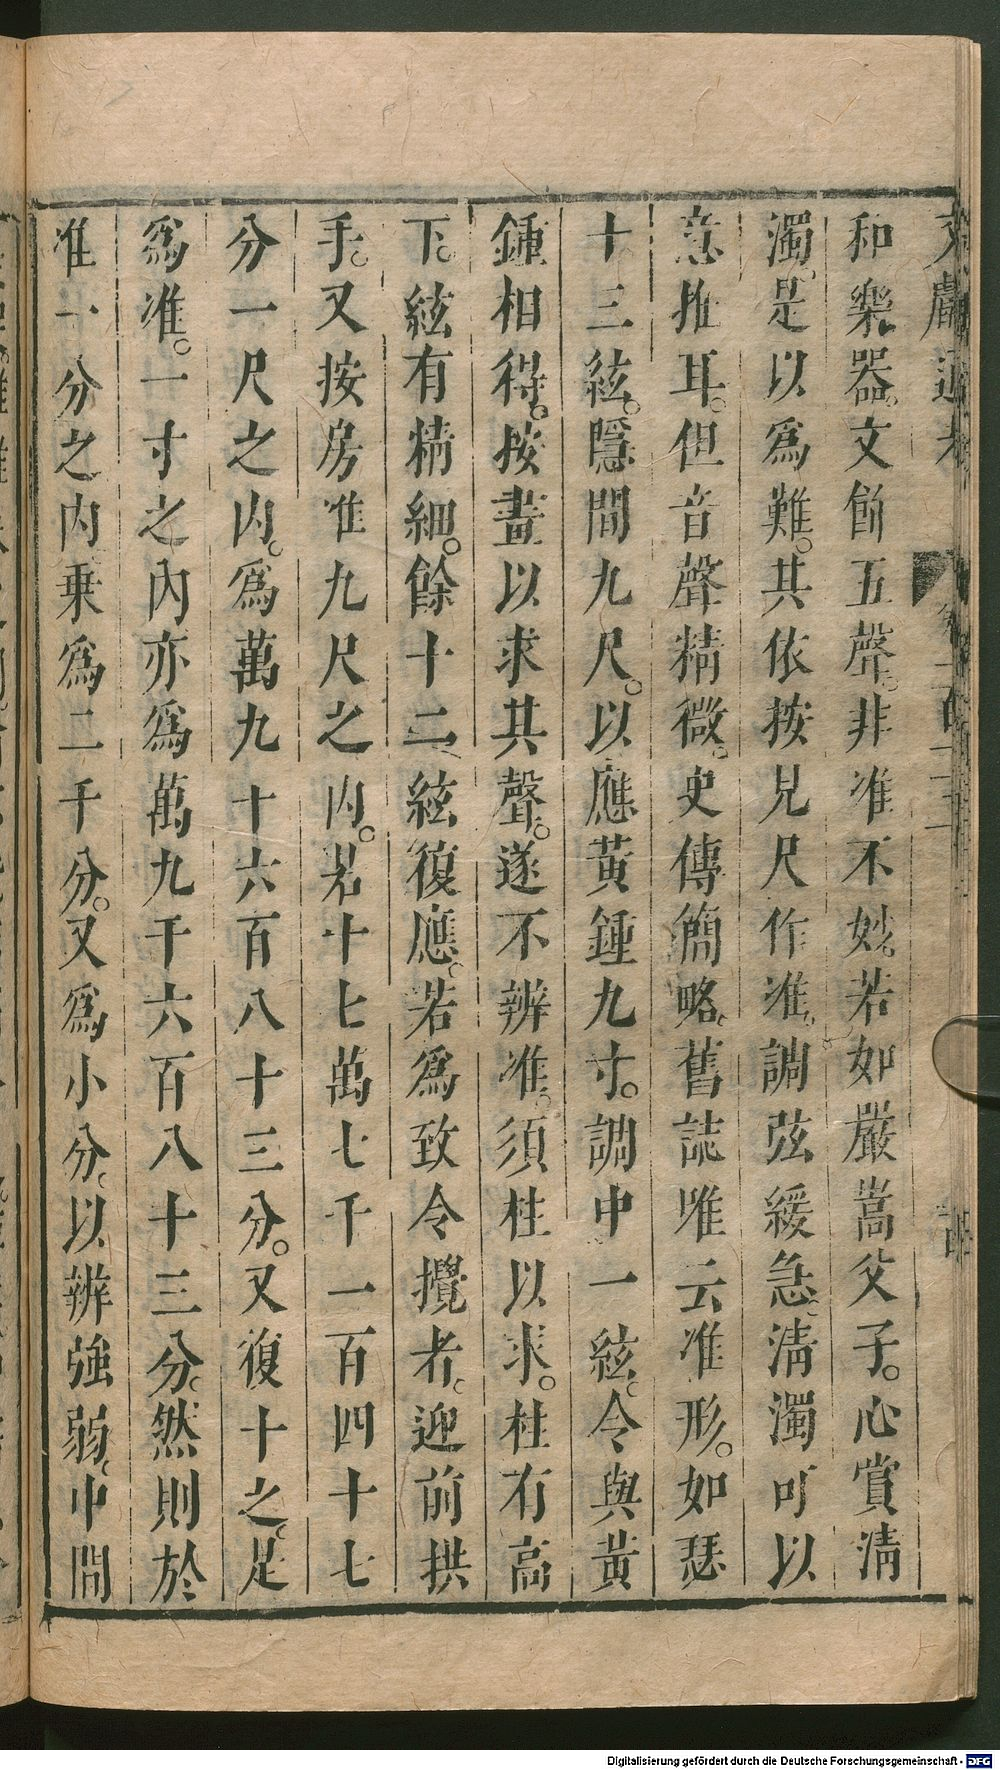 文獻通考
和樂器。文飾五聲。非准不妙。若如嚴嵩父子。心賞清
濁。是以爲難。其依按見尺作准。調弦緩急。清濁可以
意推耳。但音聲精微。史傳簡略。舊誌唯云准形。如瑟
十三絃。隱間九尺。以應黃鍾九寸。調中一絃。令與黃
鍾相得。按畫以求其聲。遂不辨准。須柱以求。柱有高
下。絃有精細。餘十二絃復應。若爲致令攬者。迎前拱
手。又按房准九尺之內。若十七萬七千一百四十七
分一尺之內。爲萬九十六百八十三分。又復十之。是
爲准。一寸之內亦爲萬九千六百八十三分。然則於
准一分之內乗爲二千分。又爲小分。以辨強弱。中間
Digitalisierung gefördert durch die Deutsche Forschungsgemeinschaft - DFG